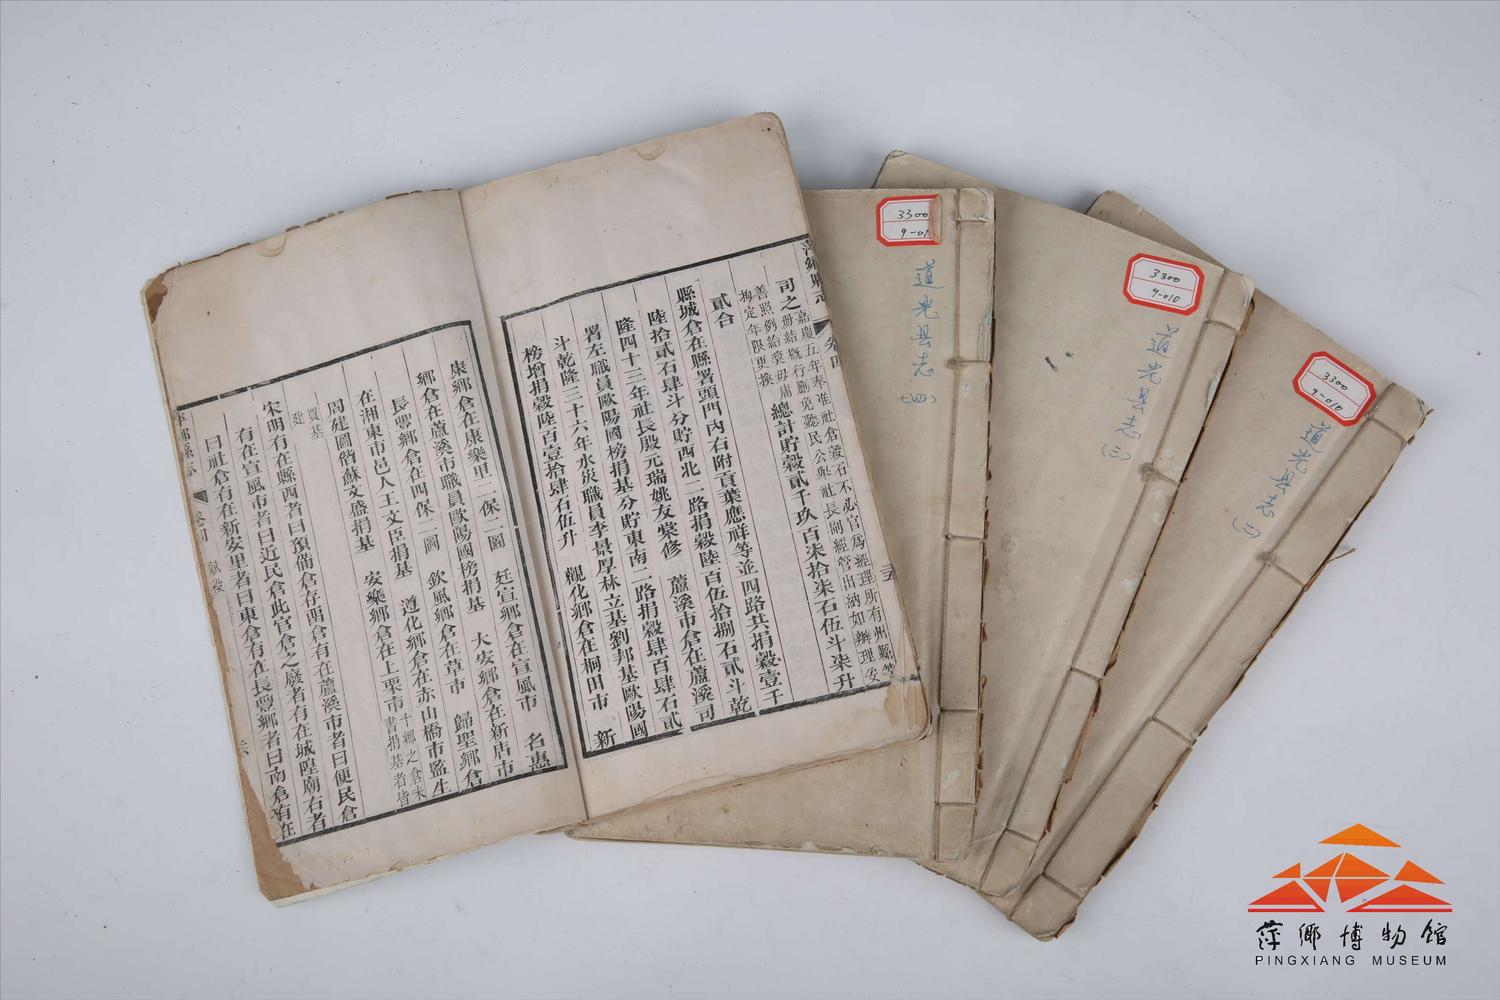 萍鄉縣志
卷四
司之
嘉慶五年奉准社倉穀石不必官爲經理所有州縣
冊結槪行刪免聽民公舉社長副經管出納如辦理妥
善照例給奬毋庸
拘定年限更換
總計貯穀貳千玖百柒拾柒石伍斗柒升
貳合
縣城倉在縣署頭門內右附貢葉應祥等並四路共捐穀壹千
陸拾貳石肆斗分貯西北二路捐穀陸百伍拾捌石貳斗乾
隆四十三年社長殷元瑞姚友棠修 蘆溪市倉在蘆溪司
署左職員歐陽國榜捐基分貯東南二路捐穀肆百肆石貳
斗乾隆三十六年水災職員李景厚林立基劉邦基歐陽國
榜增捐穀陸百壹拾肆石伍升 觀化鄉倉在桐田市 新
康鄉倉在康樂里二保二圖 廷宣鄉倉在宣風市 名惠
鄉倉在蘆溪市職員歐陽國榜捐基 大安鄉倉在新店市
長豐鄉倉在四保二圖 欽風鄉倉在草市 歸聖鄉倉
在湘東市邑人王文臣捐基 遵化鄉倉在赤山橋市監生
周廷圖偕蘇文盛捐基 安樂鄉倉在上栗市
十鄉之倉未
書捐基者皆
買基
建
宋明有在縣西者曰預備倉存畱倉有在蘆溪市者曰便民倉
有在宣風市者曰近民倉此官倉之廢者有在城隍廟右者
曰社倉有在新安里者曰東倉有在長豐鄉者曰南倉有在
卷四 賦役
3300
道光县志
(四)
3300
9-010
道光县志
(三)
3300
9-010
道光县志
(二)
萍鄉博物館
PINGXIANG MUSEUM